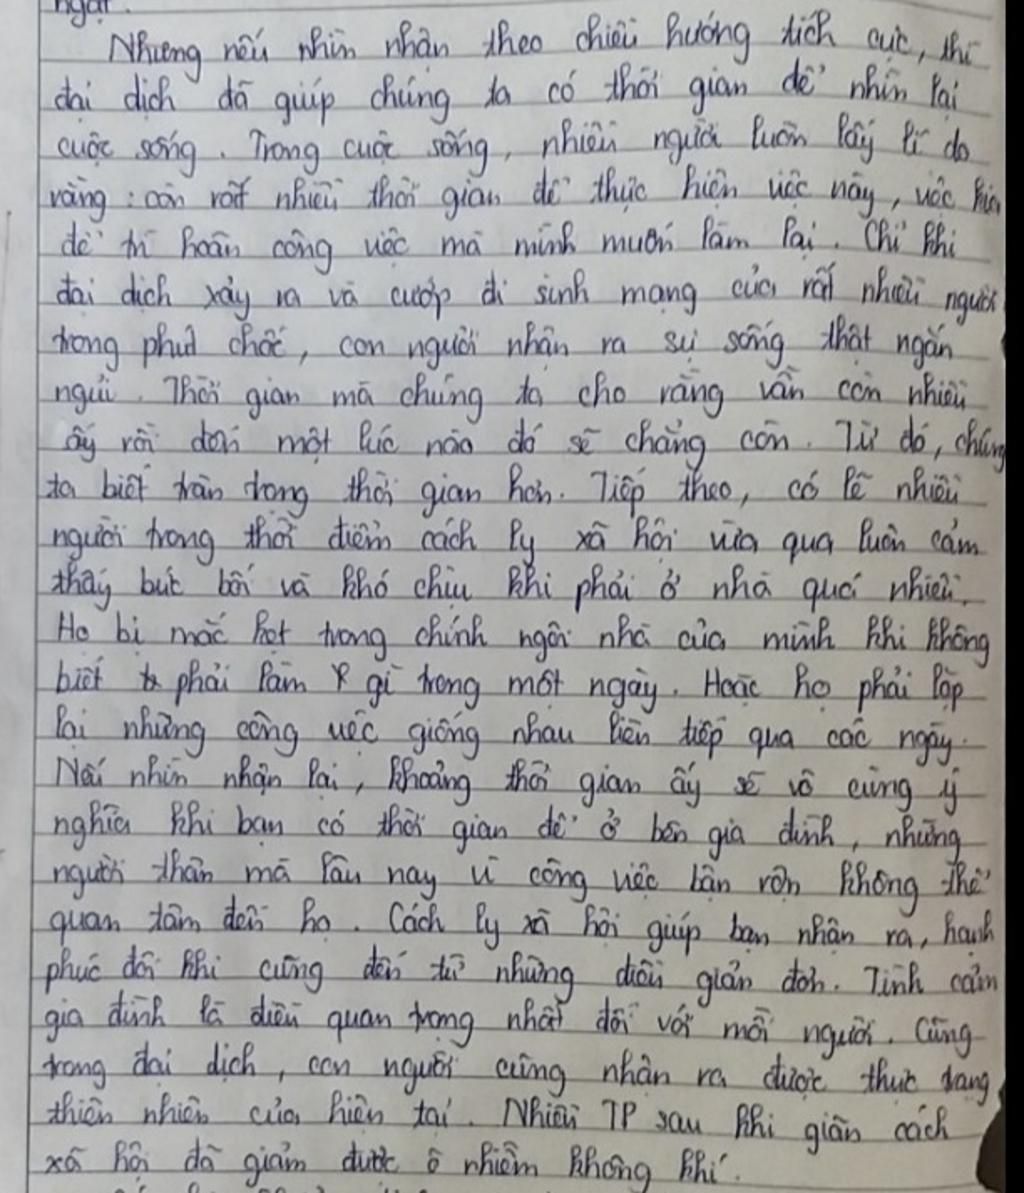 ngạt.
Nhưng nếu nhìn nhận theo chiều hướng tích cực, thì
đại dịch đã giúp chúng ta có thời gian để nhìn lại
cuộc sống. Trong cuộc sống, nhiều người luôn lấy lí do
rằng: còn rất nhiều thời gian để thực hiện việc này, việc kia
để trì hoãn công việc mà mình muốn làm lại. Chỉ khi
đại dịch xảy ra và cướp đi sinh mạng của rất nhiều người
trong phút chốc, con người nhận ra sự sống thật ngắn
ngủi. Thời gian mà chúng ta cho rằng vẫn còn nhiều
ấy rồi đến một lúc nào đó sẽ chẳng còn. Từ đó, chúng
ta biết trân trọng thời gian hơn. Tiếp theo, có lẽ nhiều
người trong thời điểm cách ly xã hội vừa qua luôn cảm
thấy bức bối và khó chịu khi phải ở nhà quá nhiều.
Họ bị mắc kẹt trong chính ngôi nhà của mình khi không
biết phải làm gì trong một ngày. Hoặc họ phải lặp
lại những công việc giống nhau liên tiếp qua các ngày.
Nếu nhìn nhận lại, khoảng thời gian ấy sẽ vô cùng ý
nghĩa khi bạn có thời gian để ở bên gia đình, những
người thân mà lâu nay vì công việc bận rộn không thể
quan tâm đến họ. Cách ly xã hội giúp bạn nhận ra, hạnh
phúc đôi khi cũng đến từ những điều giản đơn. Tình cảm
gia đình là điều quan trọng nhất đối với mỗi người. Cũng
trong đại dịch, con người cũng nhận ra được thực trạng
thiên nhiên của hiện tại. Nhiều TP sau khi giãn cách
xã hội đã giảm được ô nhiễm không khí.